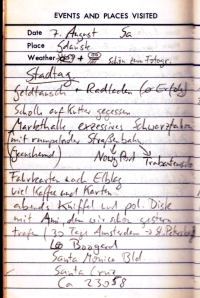 EVENTS AND PLACES VISITED
Date 7. August Sa
Place Gdansk
Weather schön zum Fotogr.
Stadttag
Geldtausch + Radladen (ø Erfolg)
Scholle auf Kutter gegessen
Markthalle exzessives Schwarzfahren
mit rumpelnder Straßenbahn
Nowy Port
Fahrkarten nach Elblag
viel Kaffee und Karten
abends Kniffel und pol. Disko
mit dem wir schon gestern
trafen (30 Tage Amsterdam -> St. Petersburg)
Boogard
Santa Monica Bld
Santa Cruz
Ca 23058